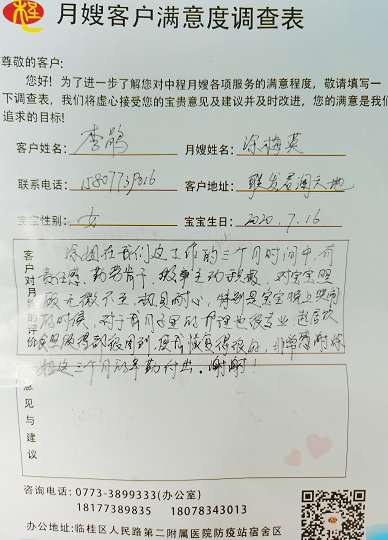 月嫂客户满意度调查表
尊敬的客户:
您好! 为了进一步了解您对中程月嫂各项服务的满意程度, 敬请填写一
下调查表, 我们将虚心接受您的宝贵意见及建议并及时改进, 您的满意是我们
追求的目标!
客户姓名: 李鹃 月嫂姓名: 涂梅英
联系电话: 客户地址: 联发君澜天地
宝宝性别: 女 宝宝生日: 2020.7.16
客户对月嫂的评价
涂姐在我们这工作的三个月时间中,有
责任感,勤劳肯干,做事主动积极,对宝宝照
顾无微不至,极具耐心,特别是宝宝晚上哭闹
的时候,对于月子里的护理也很专业,起居饮
食照顾得都很周到,使我恢复得很好,非常感谢涂
姐这三个月的辛勤付出,谢谢!
意见与建议
咨询电话: 0773-3899333(办公室)
18177389835 18078343013
办公地址: 临桂区人民路第二附属医院防疫站宿舍区